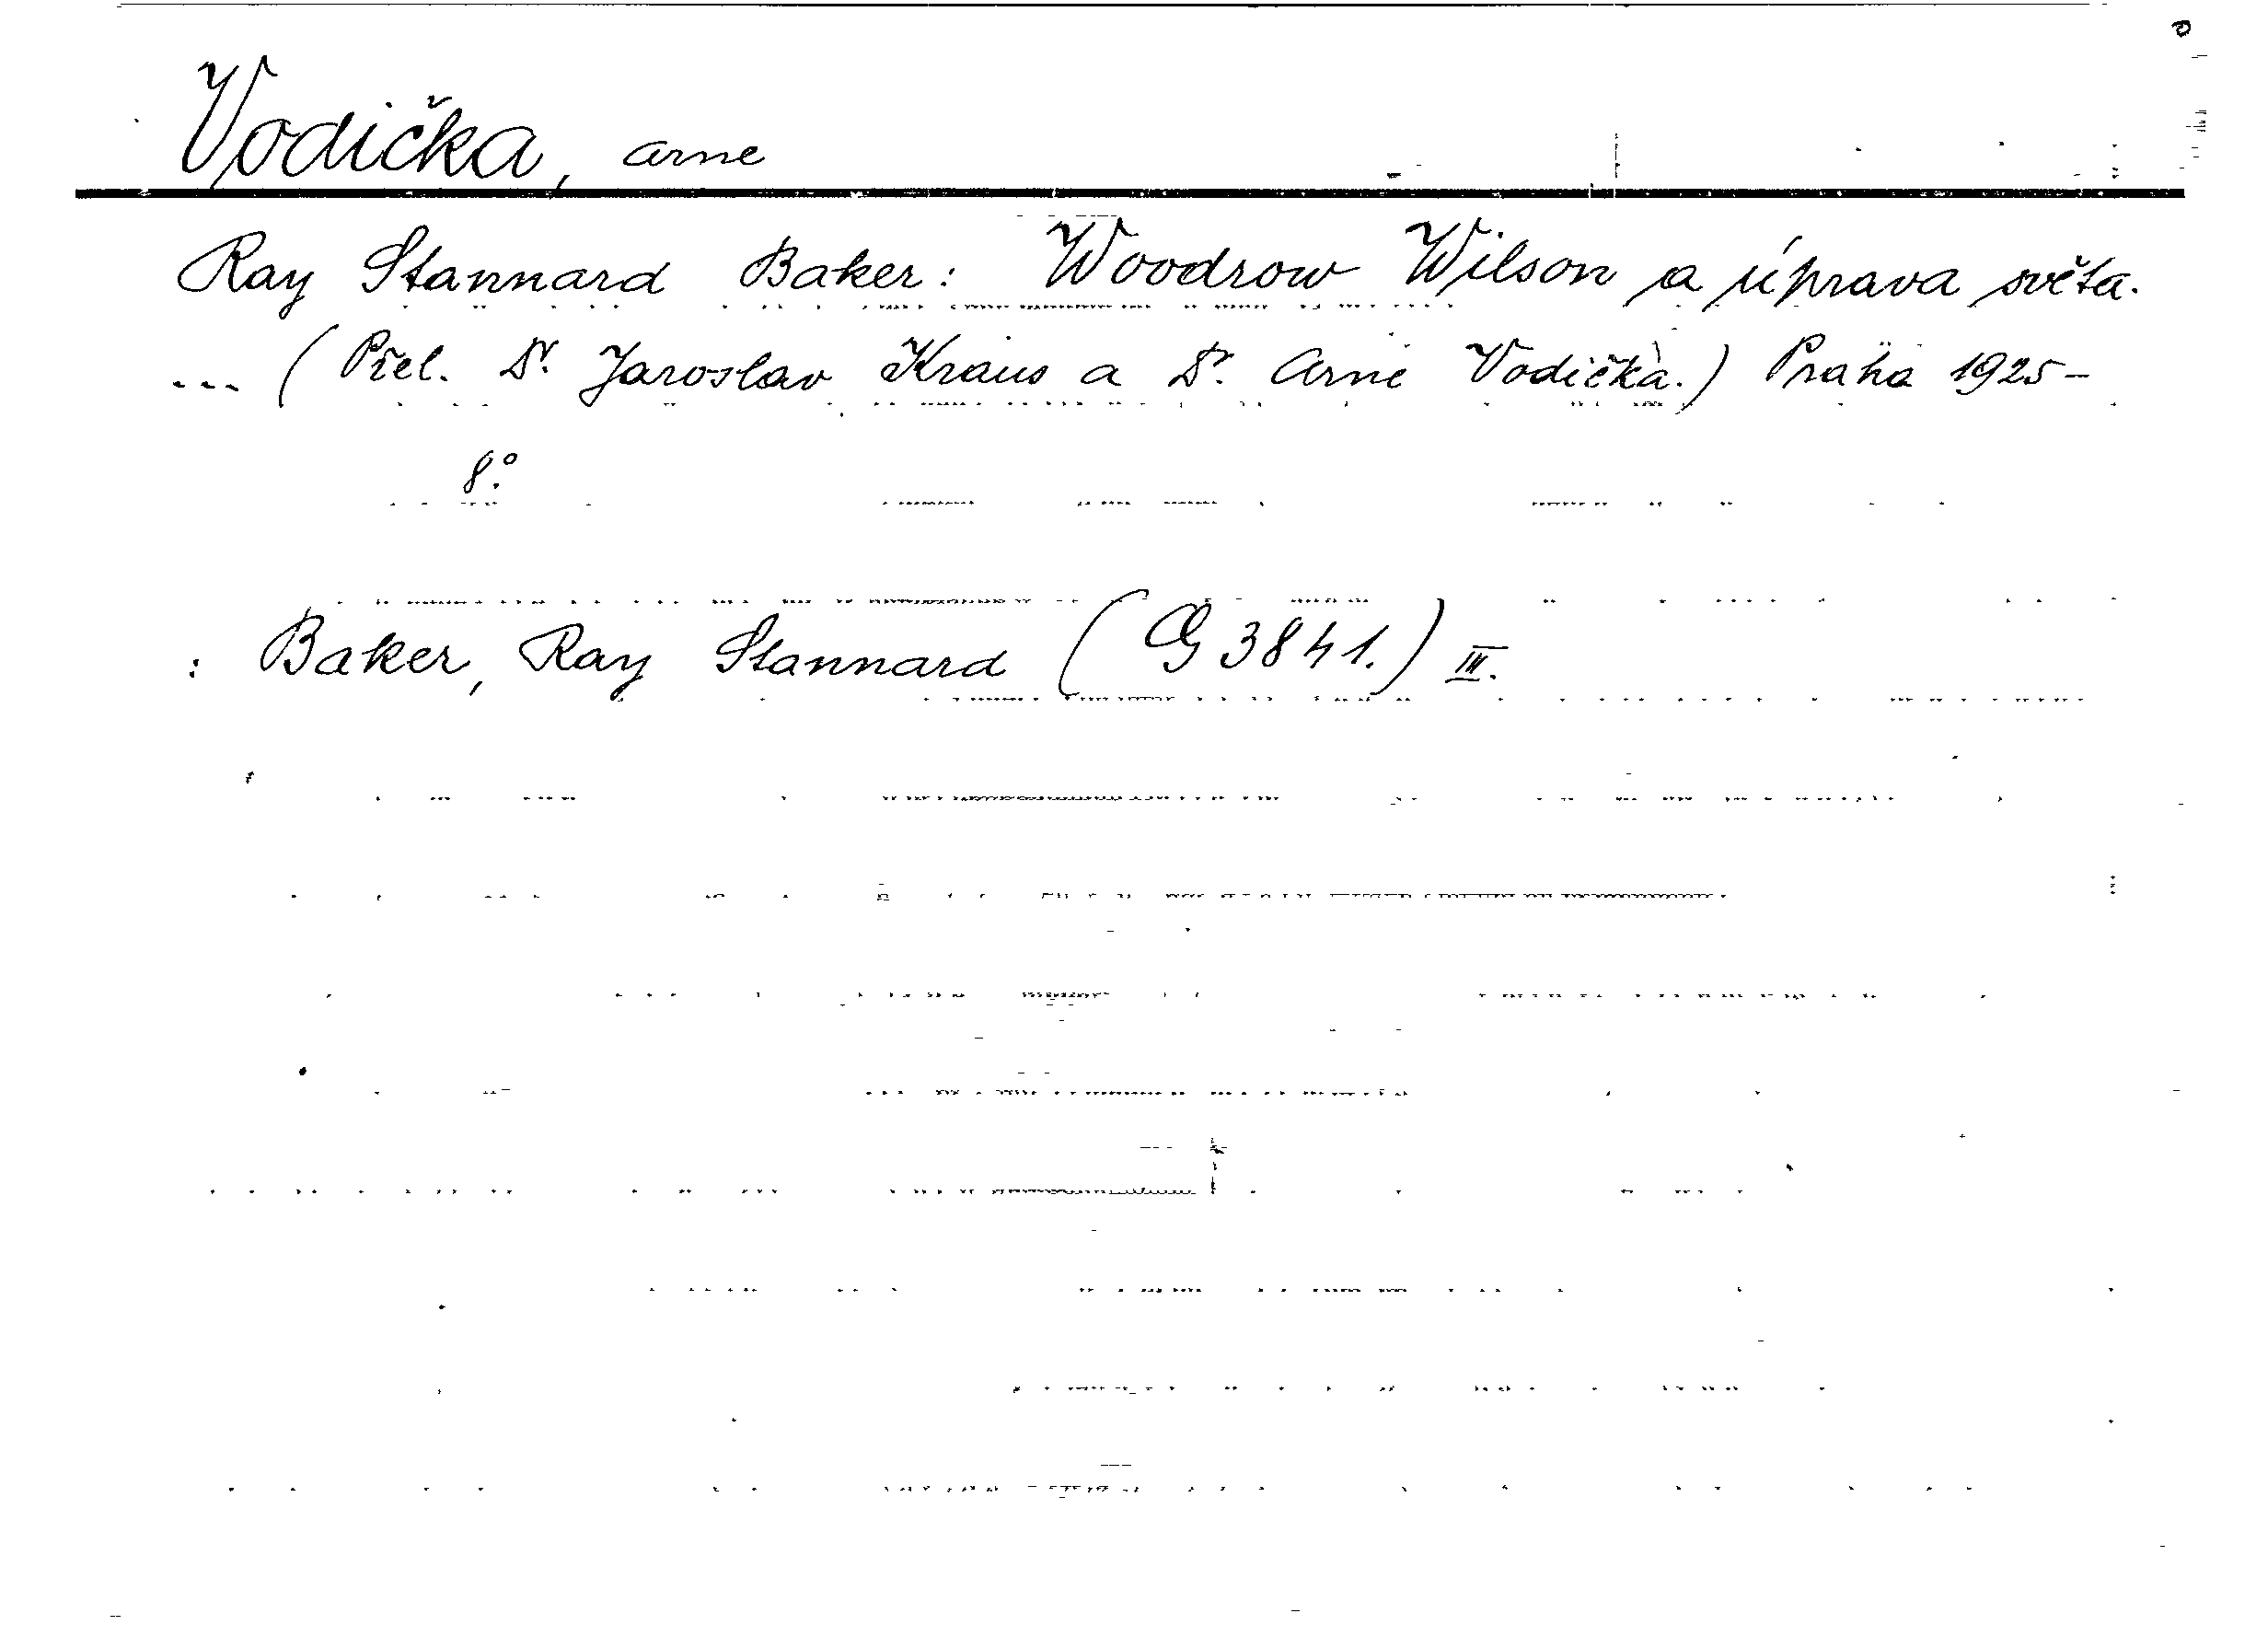 Vodička, Arne
Ray Stannard Baker: Woodrow Wilson a úprava světa.
... (Přel. Dr. Jaroslav Kraus a Dr. Arne Vodička.) Praha 1925-
8°.
: Baker, Ray Stannard (G 3841.) III.